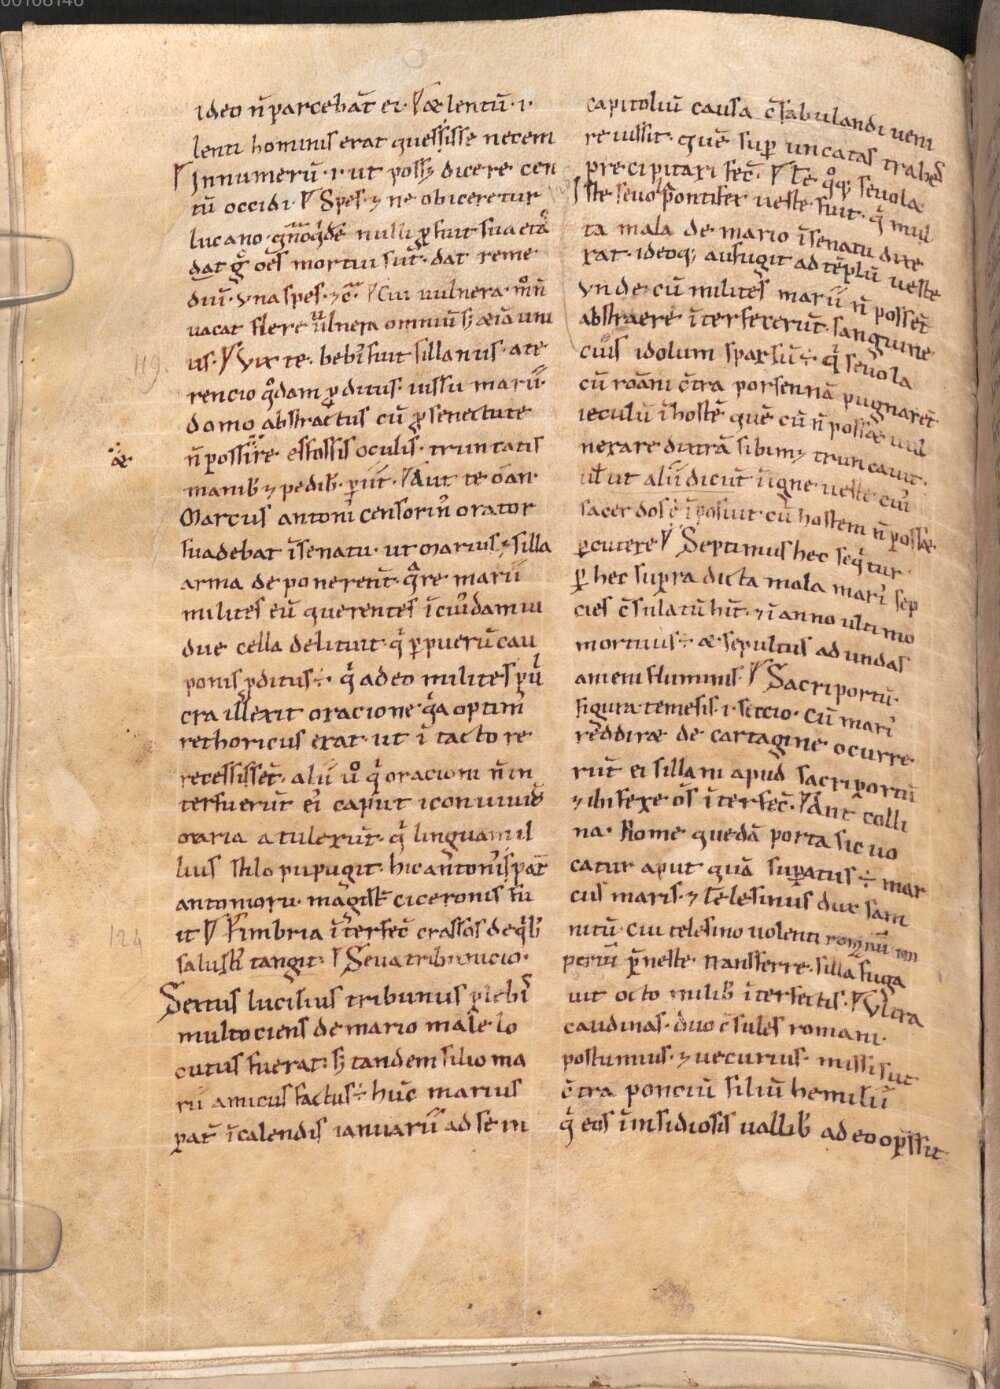 00108146
ideo n̄ parcebāt ei· Ꝩ æ lentū· i·
lenti hominis erat quesisse necem
Ꝩ Innumerū· i· ut possꝫ dicere cen
tū occidi· Ꝩ Spes· ⁊ ne obiceretur
lucano· nulli ꝓfuit sua etā
dat gͦ oēs mortui sūt· dat reme
diū· una spes· ⁊c̄· Ꝩ Cui uulnera·
uacat flere uulnera omniū sꝫ æiā uni
us· Ꝩ Vix te· bebi fuit sillanus· a te
rencio qͦdam ꝓditus· iussu marii·
domo abstractus cū ꝓ senectute
n̄ possit ire effossis oculis· truncatis
æ
manibꝫ ⁊ pedibꝫ· ꝑiit· Ꝩ Aut te
Marcus antoni censorin̄ orator
suadebat ī senatu· ut marius ⁊ silla
arma deponerent· qᵃre marii
milites eū querentes ī cuiͥdam ui
due cella delituit· qͥ ꝑ puerū cau
ponis ꝓditus ÷· qͥ adeo milites
cra illexit oracione· qͥa optim̄
rethoricus erat· ut ī tacto re
recessisset· alii uͦ qͥ oracioni n̄ in
terfuerūt ei caput
maria atulerūt· qͥ linguam il
lius stilo pupugit· hic antoni
antonioru· magist̄ ciceronis fu
it Ꝩ Fimbria īterfec̄ crassos de qͥbꝫ
salusti tangit· Ꝩ Seua tribunicio·
Sextus lucilius tribunus plebi
multociens de mario male lo
cutus fuerat· sꝫ tandem silio ma
rii amicus factus ÷ hūc marius
pat̄ ī calendis ianuarii ad se in
capitoliū causa c̄fabulandi ueni
re iussit· quē suꝑ uncatas trabes
precipitari fec̄· Ꝩ Te qͦqꝫ seuola
Iste seuo pontifex ueste fuit· qͥ mul
ta mala de mario ī senatu dixe
rat· ideoqꝫ aufugit ad tēplū ueste
Vnde cū milites marii n̄ possēt
abstraere īterfecerūt· sanguine
cuiͥs idolum sparsū ÷ qͥ seuola
cū roāni c̄tra porsennā pugnaret
ieculū ī hostē quē cū n̄ possæ uul
nerare dextrā sibimꝫ truncauit·
uł ut alii dicūt ī igne ueste cuiͥ
sacerdos ē īposiut cū hostem n̄ possæ
ꝑcutere Ꝩ Septimus hec seqͥtur
ꝑ hec supra dicta mala mari sep
cies c̄sulatū hīt· ⁊ ī anno ultimo
mortuus ÷ æ sepultus ad undas
anieni fluminis· Ꝩ Sacriportū·
figura temesis· i· seccio· cū mari
reddiræ de cartagine ocurre
rūt ei sillani apud sacriportū
⁊ ibi fere ōs īterfec̄· Ꝩ Aut colli
na· Rome quedā porta sic uo
catur aput quā supatus ÷ mar
cus maris· ⁊ telesinus dux sam
nitū· cui telesino uolenti
p̄neste transferre· silla fuga
uit octo milibꝫ īterfectis· Ꝩ Vltra
caudinas· duo c̄sules romani·
postumius· ⁊ uecurius· missi sūt
c̄tra ponciū filiū hemilii
qͥ eos īinsidiosis uallibꝫ adeo opͥssit
119.
124